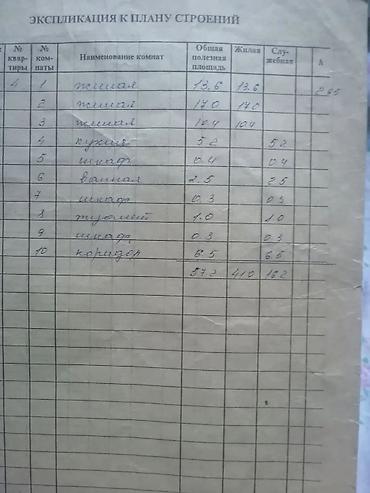 ЭКСПЛИКАЦИЯ К ПЛАНУ СТРОЕНИЙ
№ квар- тиры № ком- наты Наименование комнат Общая полезная площадь Жилая Слу- жебная h
4 1 жилая 13.6 13.6 2.65
2 жилая 17.0 17.0
3 жилая 10.4 10.4
4 кухня 5.2 5.2
5 шкаф 0.4 0.4
6 ванная 2.5 2.5
7 шкаф 0.3 0.3
8 туалет 1.0 1.0
9 шкаф 0.3 0.3
10 коридор 6.5 6.5
57.2 41.0 16.2